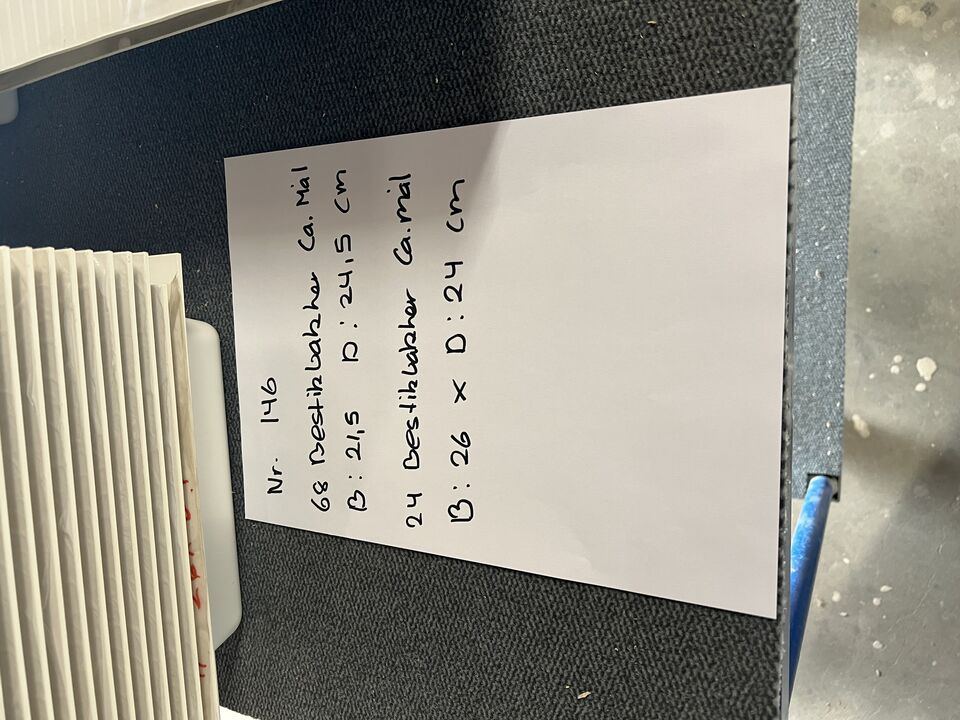 Nr. 146
68 Bestikbakker Ca. Mål
B: 21,5 D: 24,5 cm
24 Bestikbakker Ca. mål
B: 26 x D: 24 cm